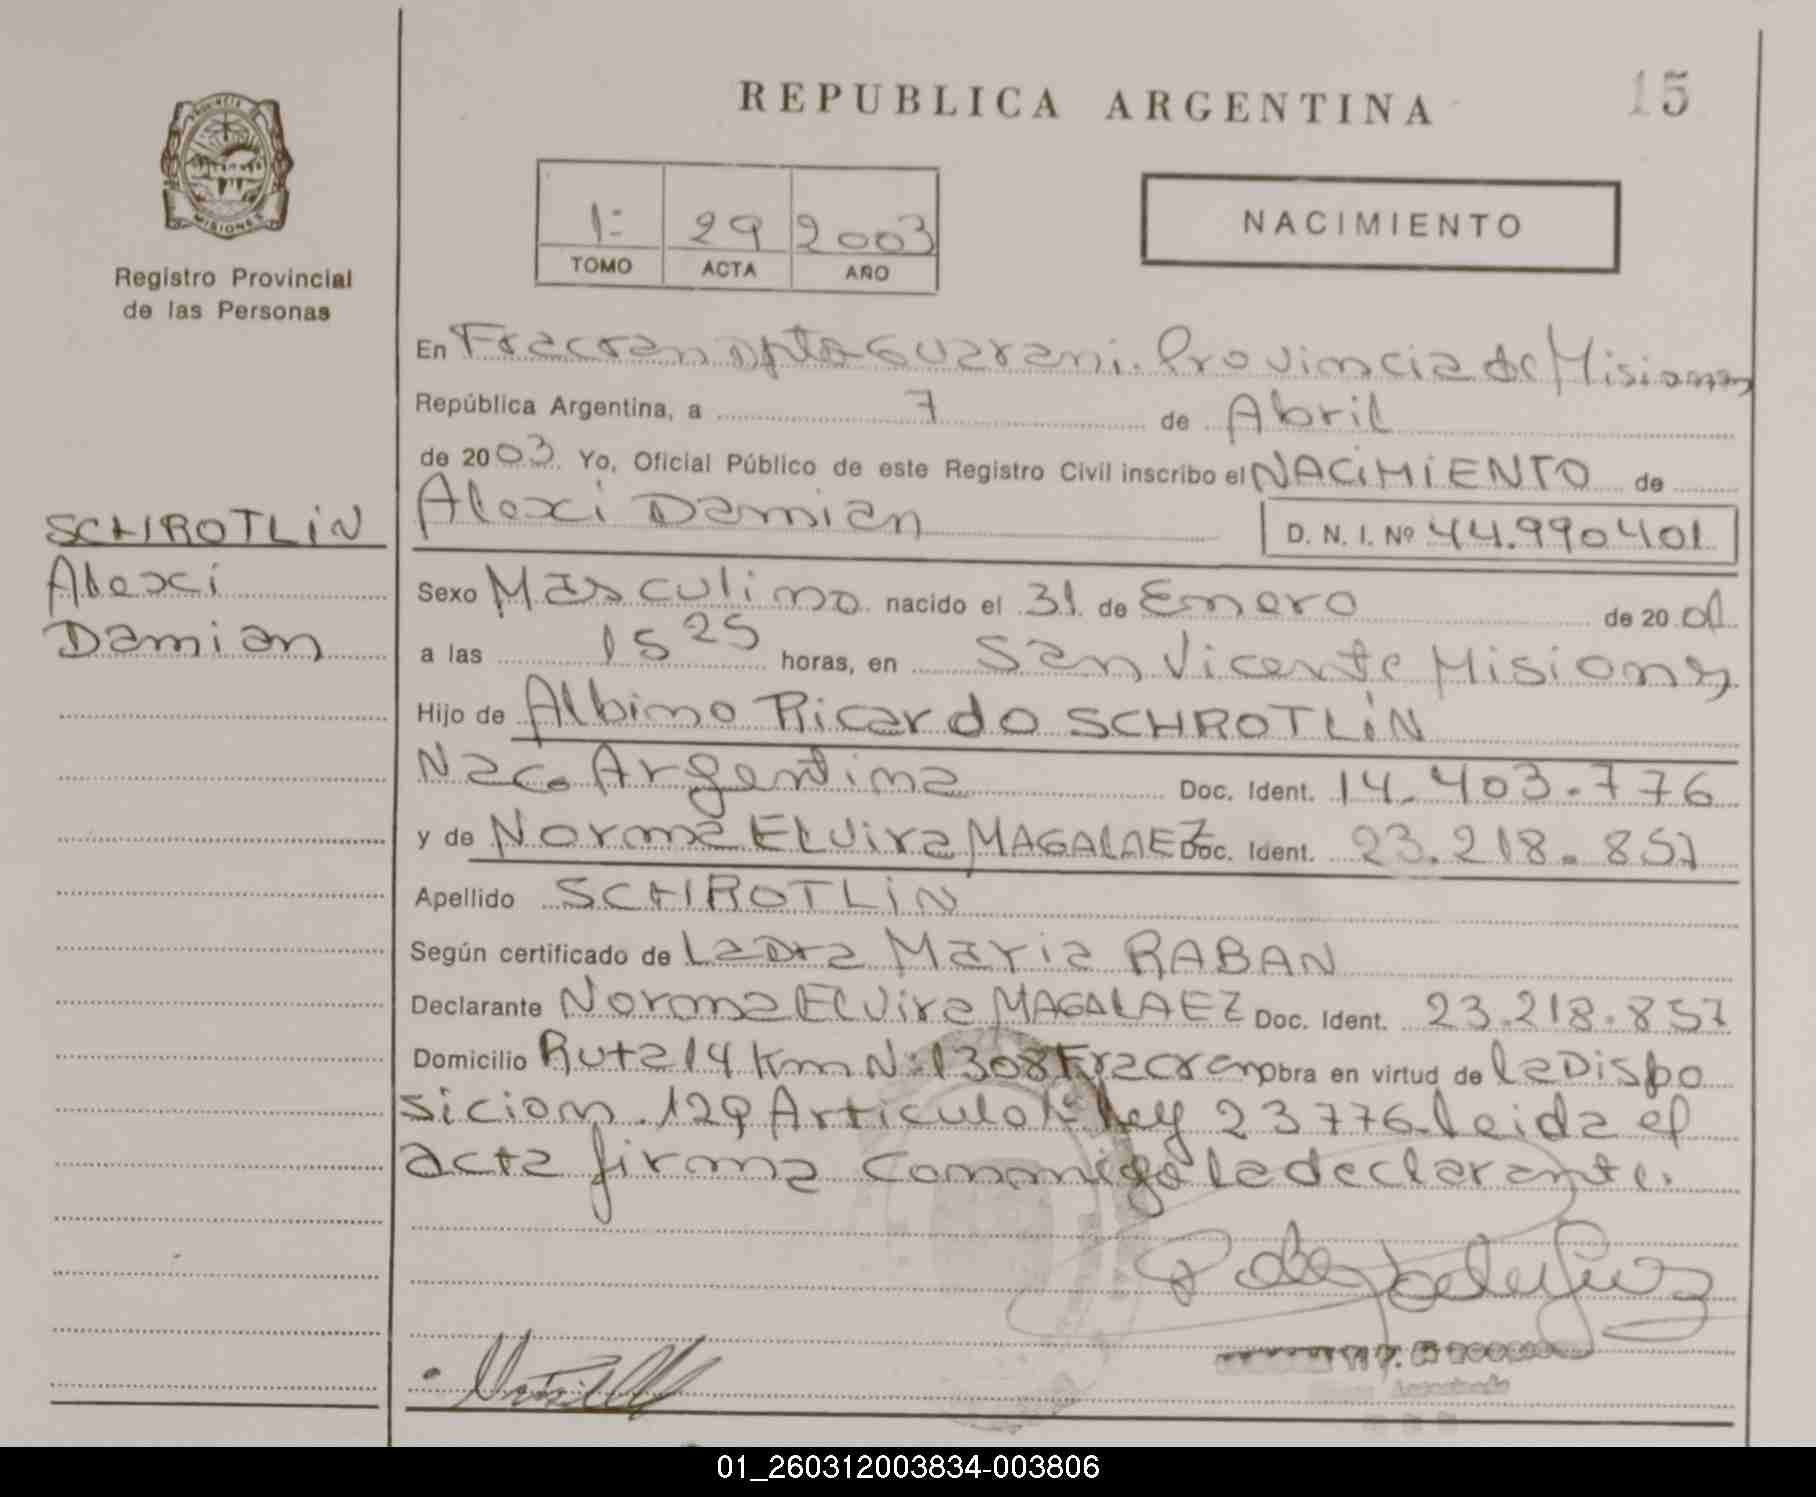 REPUBLICA ARGENTINA
15
PROVINCIA
MISIONES
Registro Provincial
de las Personas
1º 29 2003
TOMO ACTA AÑO
NACIMIENTO
En Fracran Dpto Guarani. Provincia de Misiones
República Argentina, a 7 de Abril
de 2003. Yo, Oficial Público de este Registro Civil inscribo el NACIMIENTO de
SCHROTLIN
Alexi
Damian
Alexi Damian D. N. I. Nº 44.990401
Sexo Masculino nacido el 31 de Enero de 20 01
a las 15 25 horas, en San Vicente Misiones
Hijo de Albino Ricardo SCHROTLIN
Nac. Argentina Doc. Ident. 14.403.776
y de Norma Elvira MAGALAEZ Doc. Ident. 23.218.857
Apellido SCHROTLIN
Según certificado de La Dra Maria RABAN
Declarante Norma Elvira MAGALAEZ Doc. Ident. 23.218.857
Domicilio Ruta 14 Km Nº 1308 Fracran Obra en virtud de la Dispo
sicion .129 Articulo 1º ley 23776 leida el
acta firma conmigo la declarante.
01_260312003834-003806